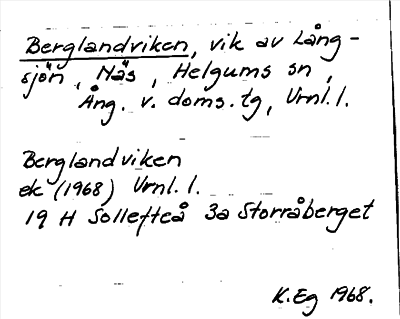 Berglandviken, vik av Lång-
sjön, Näs, Helgums sn,
Ång. v. doms.tg, Vrnl. l.
Berglandviken
ek (1968) Vrnl. l.
19 H Sollefteå 3a Storråberget
K.Eg 1968.